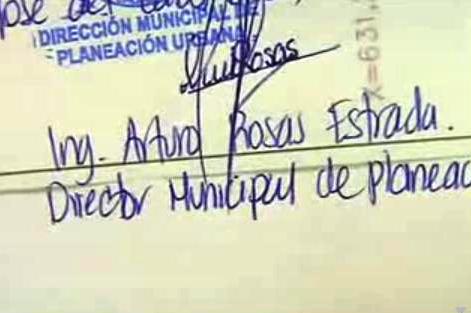 DIRECCIÓN MUNICIPAL
PLANEACIÓN URBANA
X=631,
Ing. Arturo Rosas Estrada.
Director Municipal de planeac